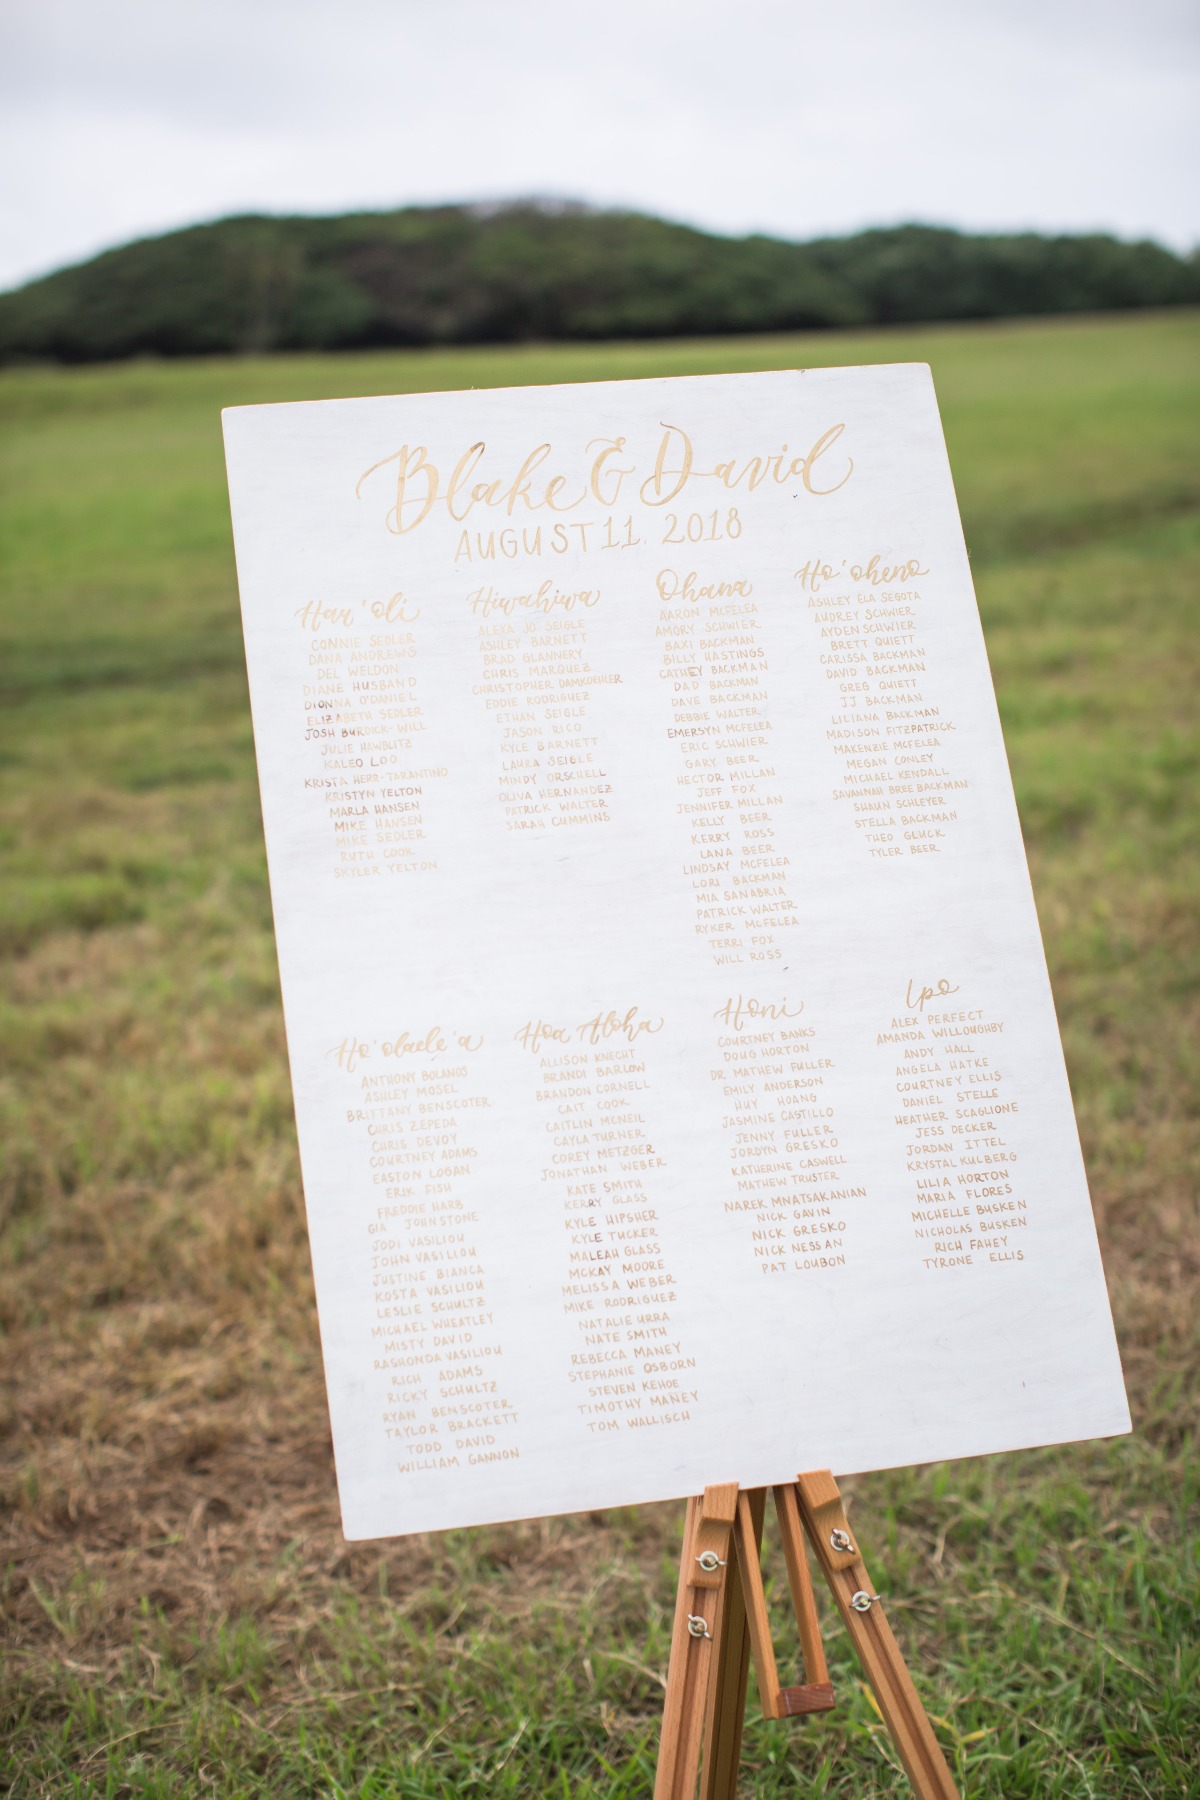 Blake & David
AUGUST 11. 2018
Hau'oli
CONNIE SEDLER
DANA ANDREWS
DEL WELDON
DIANE HUSBAND
DIONNA O'DANIEL
ELIZABETH SEDLER
JOSH BURDICK-WILL
JULIE HAWBLITZ
KALEO LOO
KRISTA HERR-TARANTINO
KRISTYN YELTON
MARLA HANSEN
MIKE HANSEN
MIKE SEDLER
RUTH COOK
SKYLER YELTON
Hiwahiwa
ALEXA JO SEIGLE
ASHLEY BARNETT
BRAD GLANNERY
CHRIS MARQUEZ
CHRISTOPHER DAMKOEHLER
EDDIE RODRIGUEZ
ETHAN SEIGLE
JASON RICO
KYLE BARNETT
LAURA SEIGLE
MINDY ORSCHELL
OLIVA HERNANDEZ
PATRICK WALTER
SARAH CUMMINS
Ohana
AARON MCFELEA
AMORY SCHWIER
BAXI BACKMAN
BILLY HASTINGS
CATHEY BACKMAN
DAD BACKMAN
DAVE BACKMAN
DEBBIE WALTER
EMERSYN MCFELEA
ERIC SCHWIER
GARY BEER
HECTOR MILLAN
JEFF FOX
JENNIFER MILLAN
KELLY BEER
KERRY ROSS
LANA BEER
LINDSAY MCFELEA
LORI BACKMAN
MIA SANABRIA
PATRICK WALTER
RYKER MCFELEA
TERRI FOX
WILL ROSS
Ho'oheno
ASHLEY ELA SEGOTA
AUDREY SCHWIER
AYDEN SCHWIER
BRETT QUIETT
CARISSA BACKMAN
DAVID BACKMAN
GREG QUIETT
JJ BACKMAN
LILIANA BACKMAN
MADISON FITZPATRICK
MAKENZIE MCFELEA
MEGAN CONLEY
MICHAEL KENDALL
SAVANNAH BREE BACKMAN
SHAUN SCHLEYER
STELLA BACKMAN
THEO GLUCK
TYLER BEER
Ho'olaule'a
ANTHONY BOLANOS
ASHLEY MOSEL
BRITTANY BENSCOTER
CHRIS ZEPEDA
CHRIS DEVOY
COURTNEY ADAMS
EASTON LOGAN
ERIK FISH
FREDDIE HARB
GIA JOHNSTONE
JODI VASILIOU
JOHN VASILIOU
JUSTINE BIANCA
KOSTA VASILIOU
LESLIE SCHULTZ
MICHAEL WHEATLEY
MISTY DAVID
RASHONDA VASILIOU
RICH ADAMS
RICKY SCHULTZ
RYAN BENSCOTER
TAYLOR BRACKETT
TODD DAVID
WILLIAM GANNON
Hoa Aloha
ALLISON KNECHT
BRANDI BARLOW
BRANDON CORNELL
CAIT COOK
CAITLIN MCNEIL
CAYLA TURNER
COREY METZGER
JONATHAN WEBER
KATE SMITH
KERRY GLASS
KYLE HIPSHER
KYLE TUCKER
MALEAH GLASS
MCKAY MOORE
MELISSA WEBER
MIKE RODRIGUEZ
NATALIE URRA
NATE SMITH
REBECCA MANEY
STEPHANIE OSBORN
STEVEN KEHOE
TIMOTHY MANEY
TOM WALLISCH
Honi
COURTNEY BANKS
DOUG HORTON
DR. MATHEW FULLER
EMILY ANDERSON
HUY HOANG
JASMINE CASTILLO
JENNY FULLER
JORDYN GRESKO
KATHERINE CASWELL
MATHEW TRUSTER
NAREK MNATSAKANIAN
NICK GAVIN
NICK GRESKO
NICK NESSAN
PAT LOUBON
Ipo
ALEX PERFECT
AMANDA WILLOUGHBY
ANDY HALL
ANGELA HATKE
COURTNEY ELLIS
DANIEL STELLE
HEATHER SCAGLIONE
JESS DECKER
JORDAN ITTEL
KRYSTAL KULBERG
LILIA HORTON
MARIA FLORES
MICHELLE BUSKEN
NICHOLAS BUSKEN
RICH FAHEY
TYRONE ELLIS